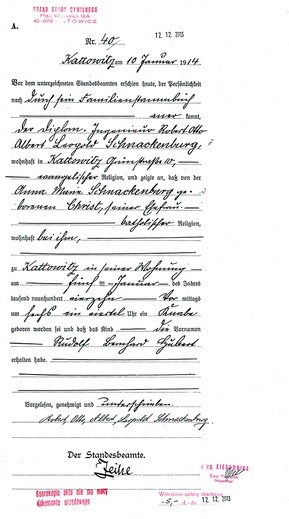 URZĄD STANU CYWILNEGO
KATOWICE
A.
Nr. 40
12 12 2013
Kattowitz am 10 Januar 1914
Vor dem unterzeichneten Standesbeamten erschien heute, der Persönlichkeit
nach durch sein Familienstammbuch
kannt,
der diplom. Ingenieur Robert Otto
Albert Leopold Schnackenburg,
wohnhaft in Kattowitz Grünstraße 10,
evangelischer Religion, und zeigte an, daß von der
Anna Maria Schnackenburg ge-
borenen Christ, seiner Ehefrau
katholischer Religion,
wohnhaft bei ihm,
zu Kattowitz in seiner Wohnung
am fünften Januar des Jahres
tausend neunhundert vierzehn Vor mittags
um sechs ein viertel Uhr ein Knabe
geboren worden sei und daß das Kind den Vornamen
Rudolf Bernhard Hubert
erhalten habe.
Vorgelesen, genehmigt und unterschrieben.
Robert Otto Albert Leopold Schnackenburg.
Der Standesbeamte.
Kserokopia akt nie ma mocy
dokumentu urzędowego
12 12 2013